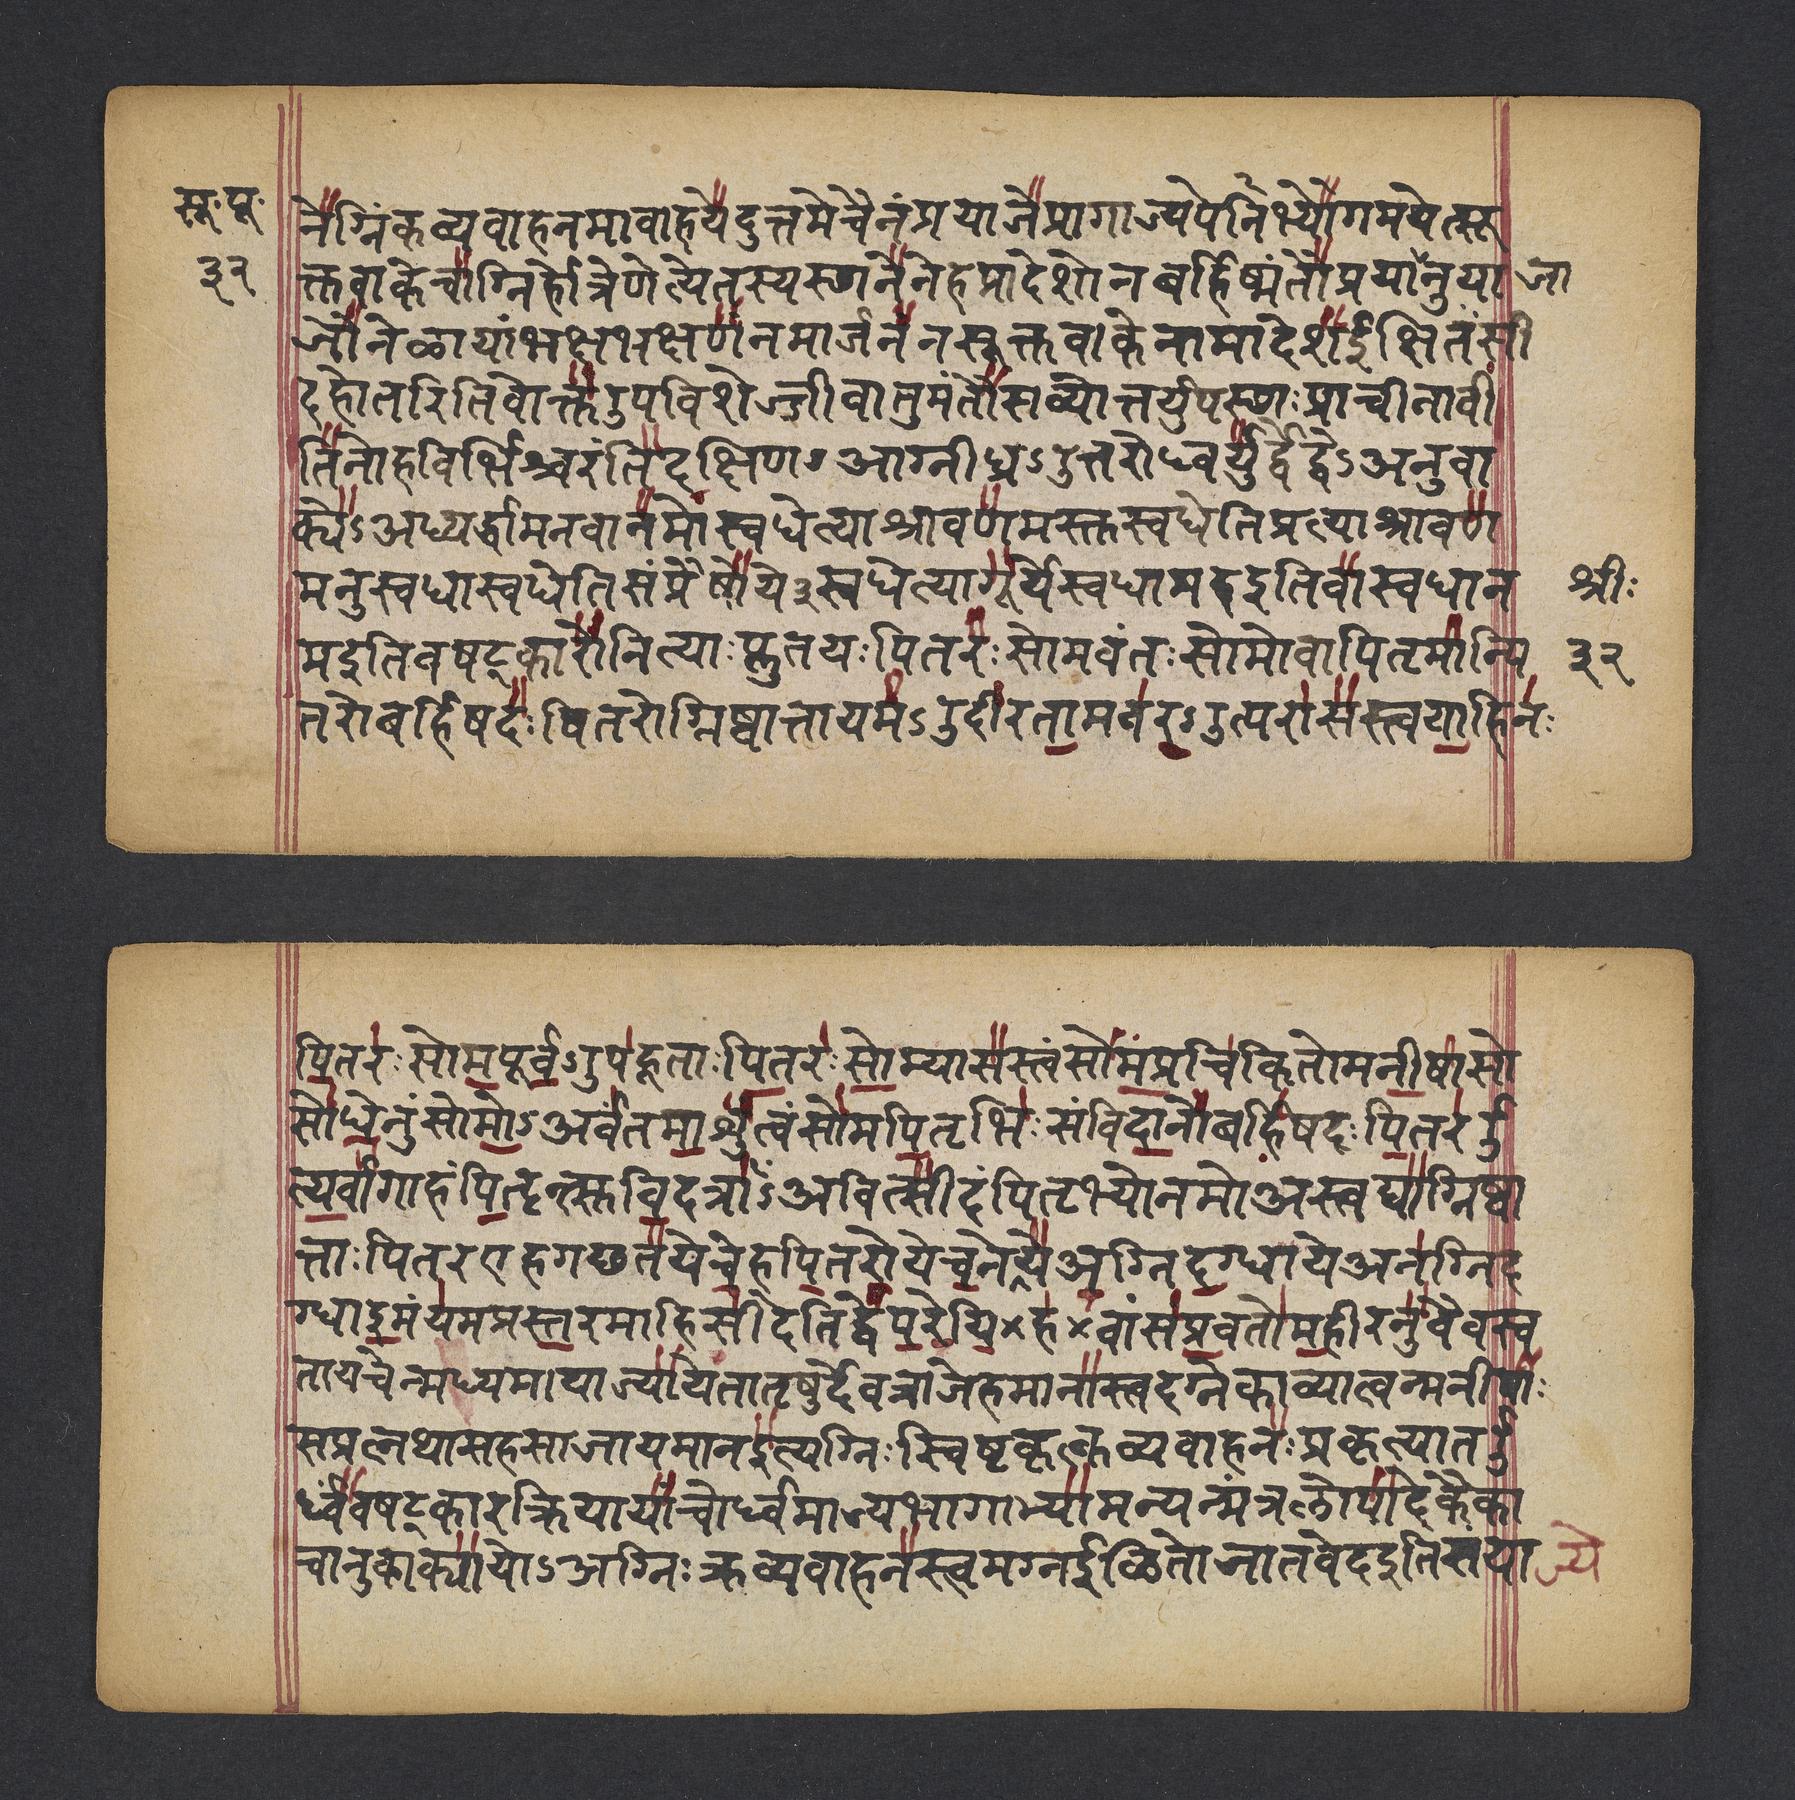 सू॰पू॰
३२
नेग्निंकव्यवाहनमावाहयेदुत्तमेचैनंप्रयाजेप्रागाज्यपेभ्योनिगमयेत्सू
क्तवाकेचाग्निर्होत्रेणेत्येतस्यस्थानेनेहप्रादेशोनबर्हिष्मंतौप्रयाजानुया
जौनेळायांभक्षभक्षणंनमार्जनंनसूक्तवाकेनामादेशईक्षितःसी
दहोतरितिवोक्तऽउपविशेज्जीवातुमंतौसव्योत्तर्युपस्थाःप्राचीनावी
तिनोहविर्भिश्चरंतिदक्षिणऽआग्नीध्रऽउत्तरोध्वर्युर्द्वेद्वेऽअनुवा
क्येऽअध्यर्द्धामनवानमोंस्वधेत्याश्रावणमस्तस्वधेतिप्रत्याश्रावण
मनुस्वधास्वधेतिसंप्रैषोये३स्वधेत्यागूर्येस्वधामहइतिवास्वधान
मइतिवषट्कारोनित्याःप्लुतयःपितरःसोमवंतःसोमोवापितृमान्पि
तरोबर्हिषदःपितरोग्निष्वात्तायमऽउदीरतामवरऽउत्परासस्त्वयाहिनः
श्रीः
३२
पितरःसोमपूर्वऽउपहूताःपितरःसोम्यासस्त्वंसोमप्रचिकितोमनीषासो
सोधेनुंसोमोऽअर्वंतमाशुंत्वंसोमपितृभिःसंविदानोबर्हिषदःपितरऊ
त्यर्वागाहंपितॄन्त्सुविदत्रांऽअवित्सीदंपितृभ्योनमोअस्त्वद्याग्निष्वा
त्ताःपितरएहगछतयेचेहपितरोयेचनेहयेअग्निदग्धायेअनग्निद
ग्धाइमंयमप्रस्तरमाहिसीदेतिद्वेपरेयि×ह×वांसंप्रवतोमहीरनुवैवस्व
तायचेन्मध्यमायाज्यायेतातृषुर्देवत्राजेहमानास्त्वदग्नेकाव्यात्वन्मनीषाः
सप्रत्नथासहसाजायमानइत्यग्निःस्विष्टकृत्कव्यवाहनःप्रकृत्यातऊ
र्ध्वंवषट्कारक्रियायांचोर्ध्वमाज्यभागाभ्यामन्यन्मंत्रलोपादेकैका
चानुवाक्यायोऽअग्निःक्रव्यवाहनस्त्वमग्नईळितोजातवेदइतिसंया
ज्ये